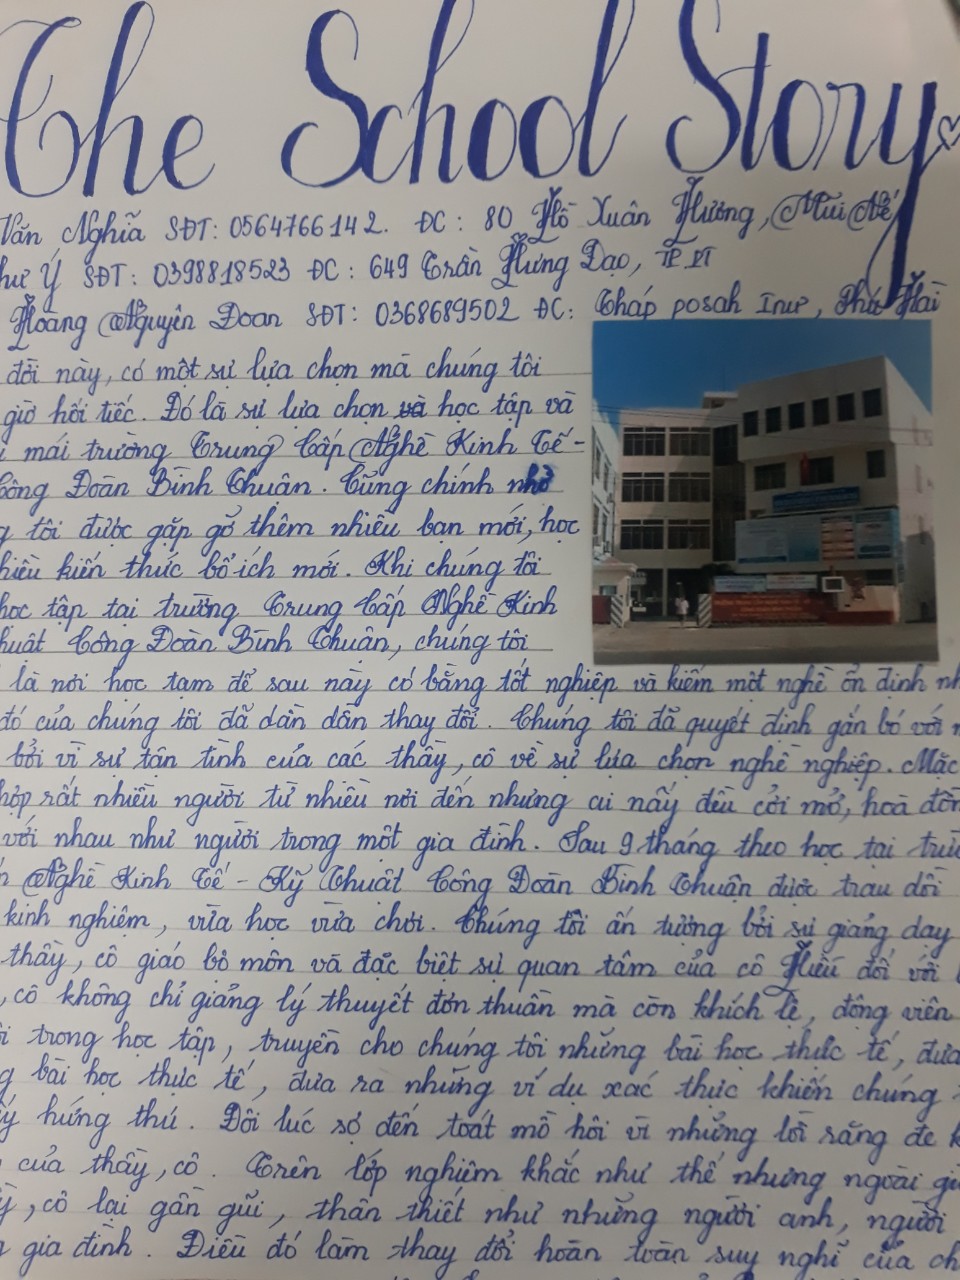 The School Story
Văn Nghĩa SĐT: 0564766142. ĐC: 80 Hồ Xuân Hương, Mũi Né
Như Ý SĐT: 0398818523 ĐC: 649 Trần Hưng Đạo, TP PT
Hoàng Nguyên Đoan SĐT: 0368689502 ĐC: Tháp posah Inư, Phú Hài
đời này, có một sự lựa chọn mà chúng tôi
giờ hối tiếc. Đó là sự lựa chọn và học tập và
mái trường Trung Cấp Nghề Kinh Tế -
Công Đoàn Bình Thuận. Cũng chính nhờ
tôi được gặp gỡ thêm nhiều bạn mới, học
nhiều kiến thức bổ ích mới. Khi chúng tôi
học tập tại trường Trung Cấp Nghề Kinh
Thuật Công Đoàn Bình Thuận, chúng tôi
là nơi học tạm để sau này có bằng tốt nghiệp và kiếm một nghề ổn định
đó của chúng tôi đã dần dần thay đổi. Chúng tôi đã quyết định gắn bó với
bởi vì sự tận tình của các thầy, cô về sự lựa chọn nghề nghiệp. Mặc
hợp rất nhiều người từ nhiều nơi đến nhưng ai nấy đều cởi mở, hoà đồng
với nhau như người trong một gia đình. Sau 9 tháng theo học tại trường
Nghề Kinh Tế - Kỹ Thuật Công Đoàn Bình Thuận được trau dồi
kinh nghiệm, vừa học vừa chơi. Chúng tôi ấn tượng bởi sự giảng dạy
thầy, cô giáo bộ môn và đặc biệt sự quan tâm của cô Hiếu đối với
, cô không chỉ giảng lý thuyết đơn thuần mà còn khích lệ, động viên
trong học tập, truyền cho chúng tôi những bài học thực tế, đưa
bài học thực tế, đưa ra những ví dụ xác thực khiến chúng
hứng thú. Đôi lúc sợ đến toát mồ hôi vì những lời răng đe
của thầy, cô. Trên lớp nghiêm khắc như thế nhưng ngoài
, cô lại gần gũi, thân thiết như những người anh, người
gia đình. Điều đó làm thay đổi hoàn toàn suy nghĩ của